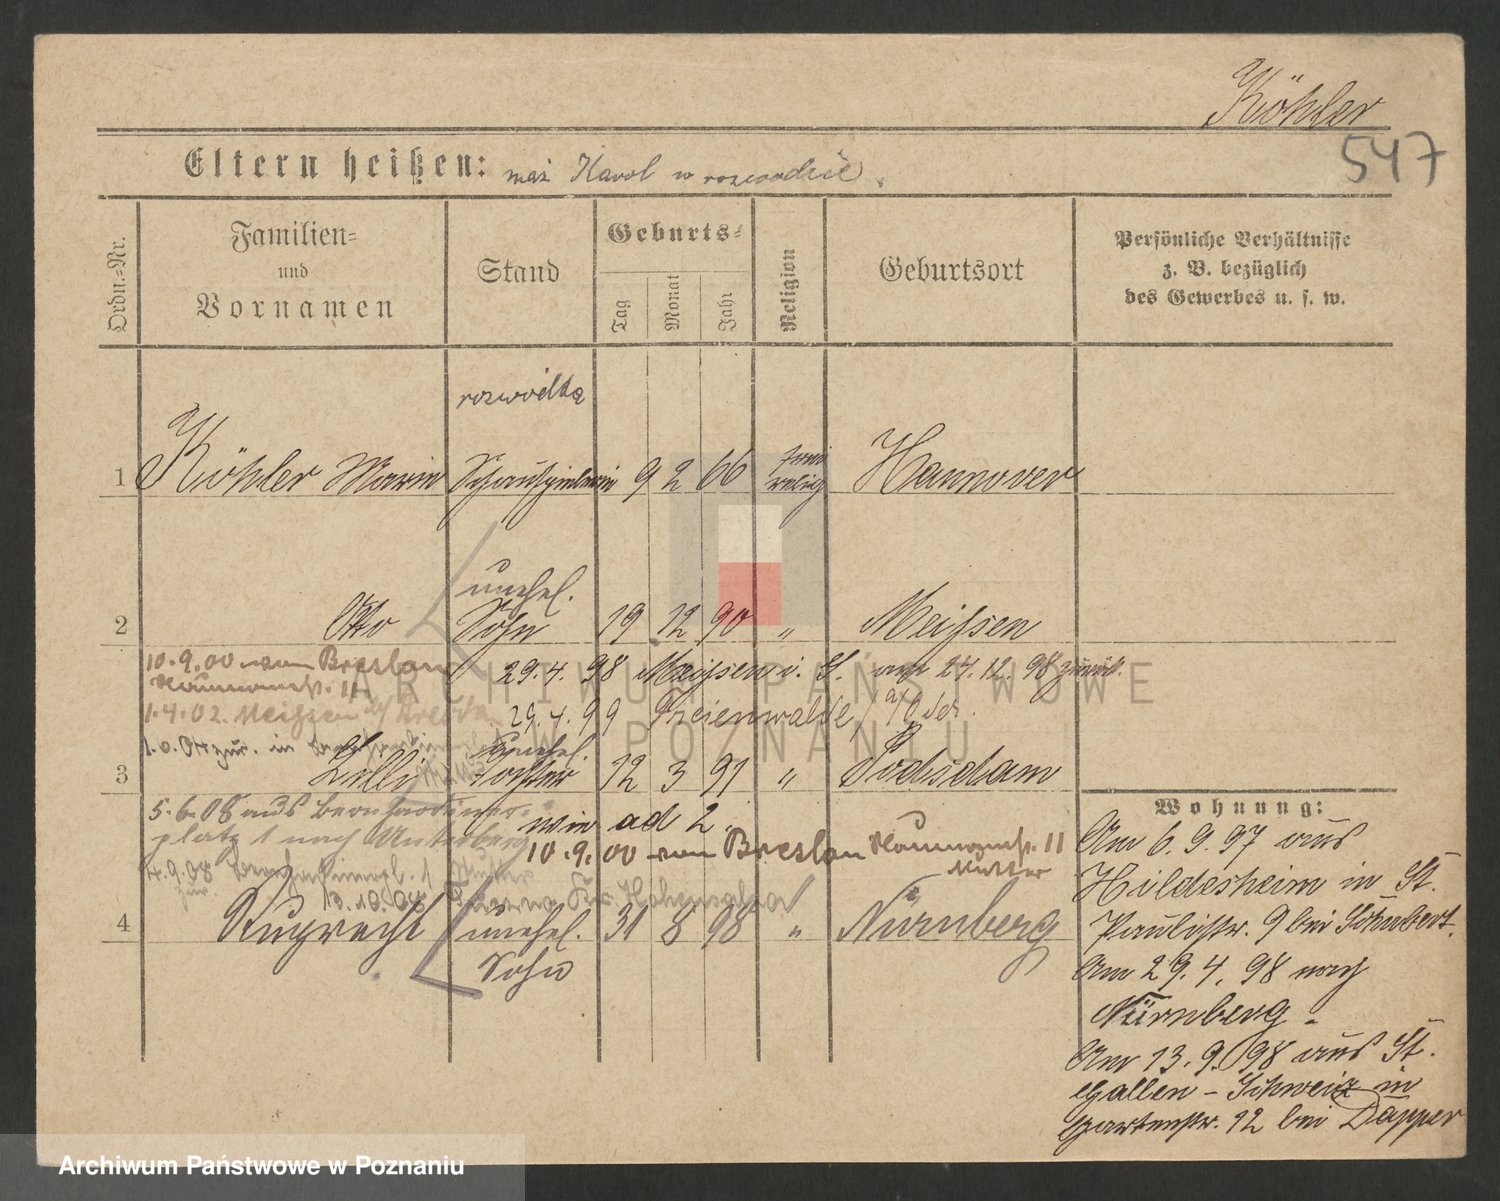 Köhler
547
Eltern heißen: mąż Karol w rozwodzie.
Ordn.-Nr.
Familien-
und
Vornamen
Stand
Geburts-
Tag
Monat
Jahr
Religion
Geburtsort
Persönliche Verhältnisse
z. B. bezüglich
des Gewerbes u. s. w.
rozwódka
1 Köhler Marie Schauspielerin 9 2 66 frei relig Hannover
unehel.
2 Otto Sohn 19 12 90 " Meißen
10.9.00 nach Breslau 29.4.98 Meißen i. S. am 27.12.98 zurück.
11
1.4.02. Meißen 29.4.99 Freienwalde a/Oder.
zur. in unehel.
3 Lilli Tochter 12 3 91 " Podsdam
Wohnung:
5.6.08 aus Bernhardiner-
platz 1 nach wie ad 2.
10.9.00 nach Breslau 11
Mutter
4.9.08
zur. 13.10.08
4 Ruprecht unehel. 31 8 98 " Nürnberg
Sohn
Am 6.9.97 aus
Hildesheim in St.
Paulistr. 9 bei Schubert.
Am 29.4.98 nach
Nürnberg.
Am 13.9.98 aus St.
Gallen - Schweiz in
Gartenstr. 12 bei Dapper
ARCHIWUM PAŃSTWOWE
W POZNANIU
Archiwum Państwowe w Poznaniu